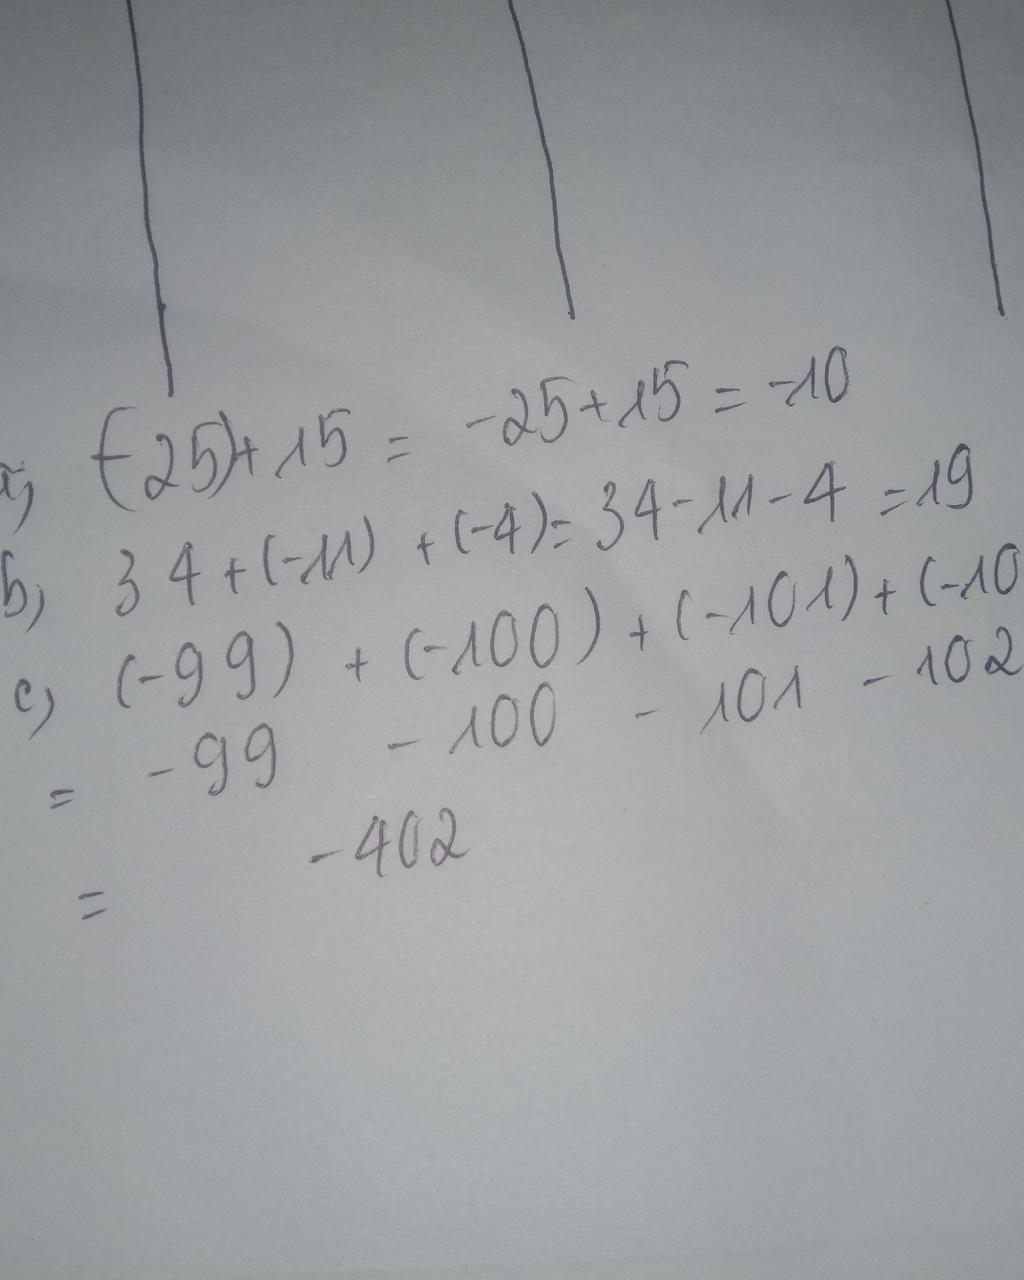 a) (-25)+15 = -25+15 = -10
b) 34+(-11) +(-4)= 34-11-4 =19
c) (-99) + (-100) + (-101) + (-10
= -99 - 100 - 101 - 102
= -402